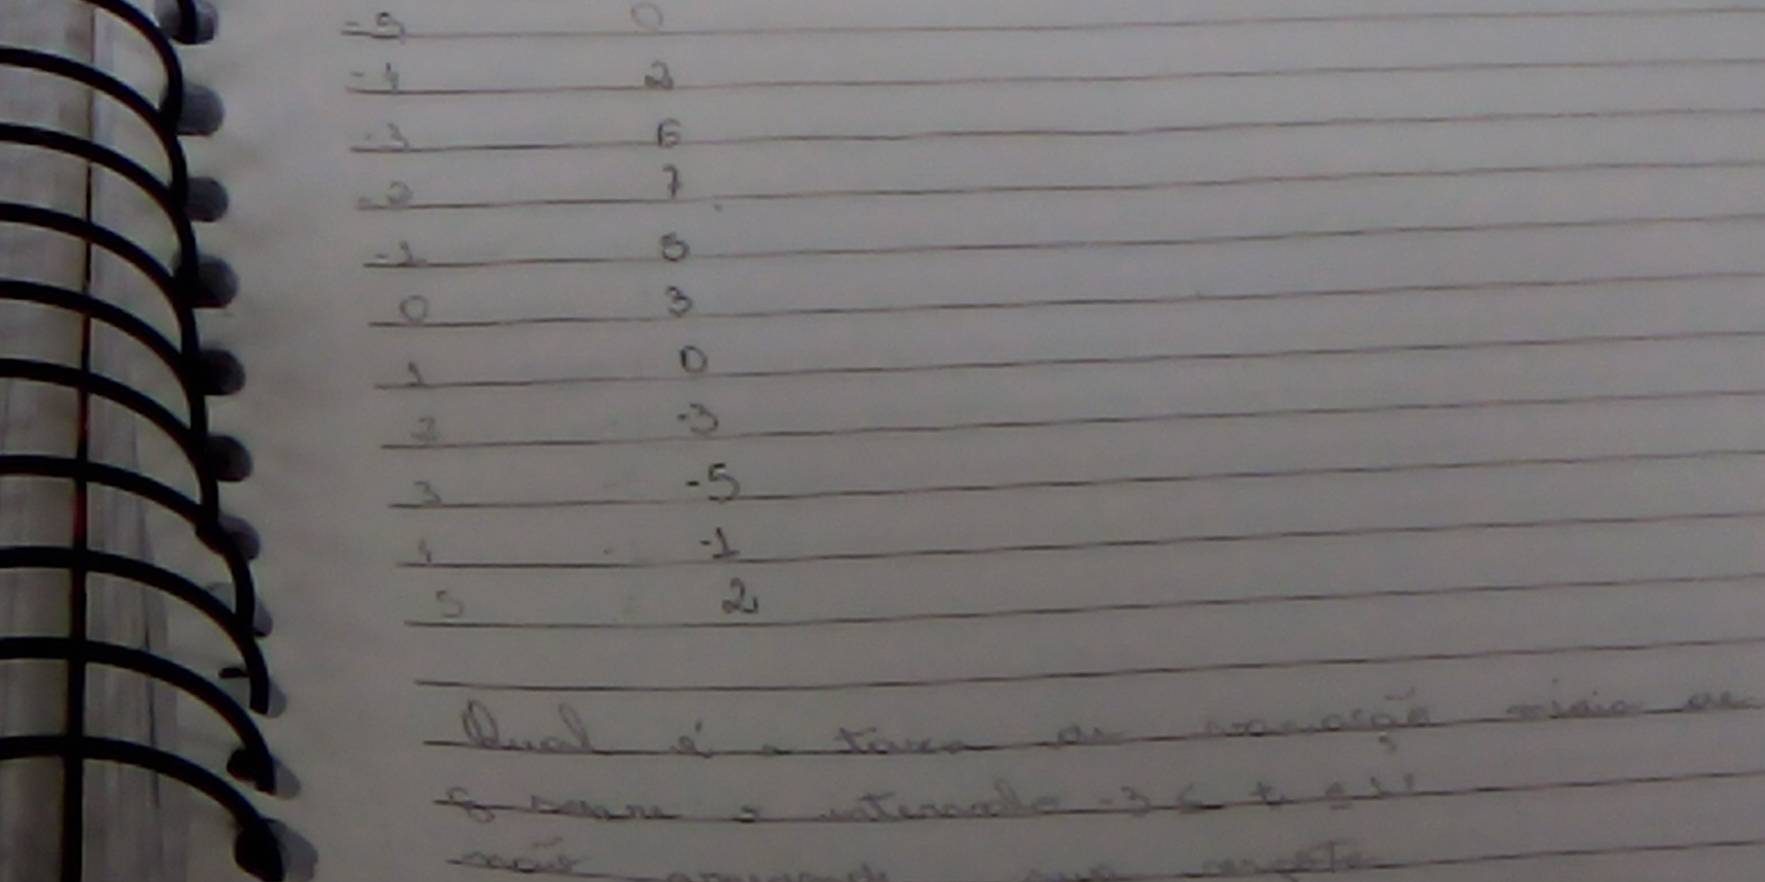 -5 0
-4 2
-3 6
-2 7
-1 5
0 3
1 0
2 -3
3 -5
4 -1
5 2
Qual é a taxa de variação média de
g sobre o intervalo -3 ≤ t ≤
não arredonde sua resposta